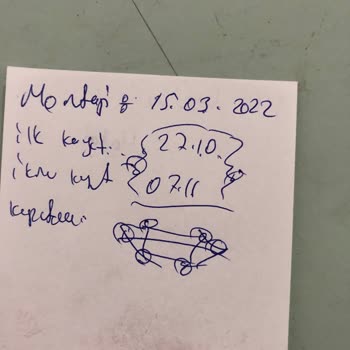 Montaj : 15.03.2022
ilk kayıt: 27.10.
ikinci kayıt 07.11
kapatılan: